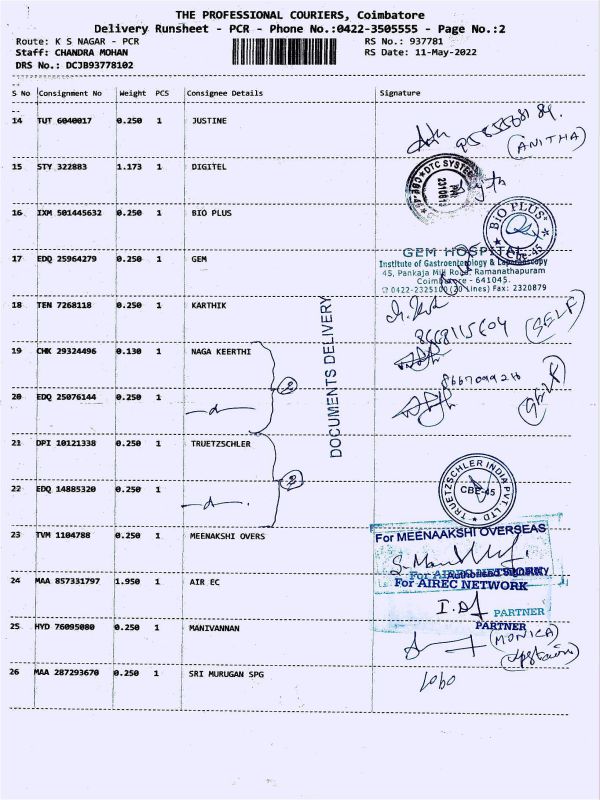 THE PROFESSIONAL COURIERS, Coimbatore
Delivery Runsheet - PCR - Phone No.:0422-3505555 - Page No.:2
Route: K S NAGAR - PCR RS No.: 937781
Staff: CHANDRA MOHAN RS Date: 11-May-2022
DRS No.: DCJB93778102
S No Consignment No Weight PCS Consignee Details Signature
14 TUT 6040017 0.250 1 JUSTINE
(ANITHA)
15 STY 322883 1.173 1 DIGITEL
DTC SYSTEM
16 IXM 501445632 0.250 1 BIO PLUS
BIO PLUS
CBE-45
17 EDQ 25964279 0.250 1 GEM
GEM HOSPITAL
Institute of Gastroenterology & Laparoscopy
45, Pankaja Mill Road, Ramanathapuram
Coimbatore - 641045.
0422-2325100 (20 Lines) Fax: 2320879
18 TEN 7268118 0.250 1 KARTHIK
(SELF)
DOCUMENTS DELIVERY
19 CHK 29324496 0.130 1 NAGA KEERTHI
2
20 EDQ 25076144 0.250 1
21 DPI 10121338 0.250 1 TRUETZSCHLER
2
22 EDQ 14885320 0.250 1
TRUETZSCHLER INDIA PVT LTD
CBE-45
23 TVM 1104788 0.250 1 MEENAKSHI OVERS
For MEENAAKSHI OVERSEAS
24 MAA 857331797 1.950 1 AIR EC
For AIREC NETWORK
For AIREC NETWORK
PARTNER
PARTNER
25 HYD 76095080 0.250 1 MANIVANNAN
(MONICA)
26 MAA 287293670 0.250 1 SRI MURUGAN SPG